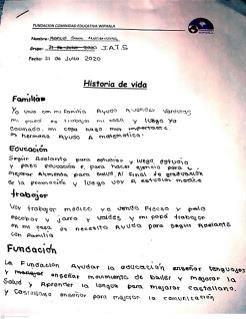 FUNDACION COMUNIDAD EDUCATIVA WIPHALA
Nombre:
Grupo: J.A.T.S
Fecha: 31 De Julio 2020
Historia de vida
Familia
Yo vivo con mi Familia Ayudo Avender Verduras
mi papá es trabajar mi casa y luego ya
cocinado. mi casa hago muy importante.
mi hermana Ayudo A matematica.
Educación
Seguir Adelante para estudio y luego estudia
y para educación Fe para hacer ejemplo para
mejorar Alimento para Salud, Al Final de graduación
de la promoción y luego voy A estudiar medico
trabajar
Voy trabajar medico ya venda Precio y pala
excabar y jarra y valdes y mi papá trabajar
en mi casa es necesito Ayuda para Seguir Adelante
con Familia
Fundación
La Fundación Ayudar la educación enseñar lenguajes
y manejar enseñar movimiento de bailer y mejorar la
Salud y Aprender la lengua para mejorar castellano.
y Castellano enseñar para mejorar la comunicación